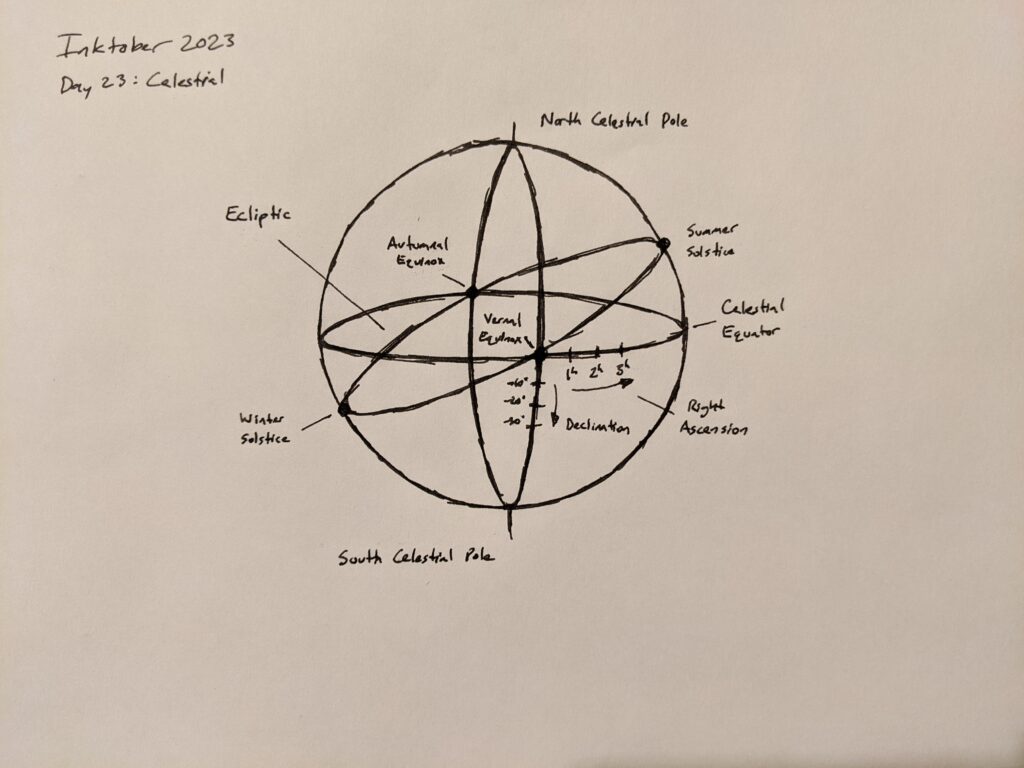 Inktober 2023
Day 23: Celestial
North Celestial Pole
Ecliptic
Summer
Solstice
Autumnal
Equinox
Celestial
Equator
Vernal
Equinox
1h 2h 3h
-10°
-20°
-30°
Declination
Right
Ascension
Winter
Solstice
South Celestial Pole